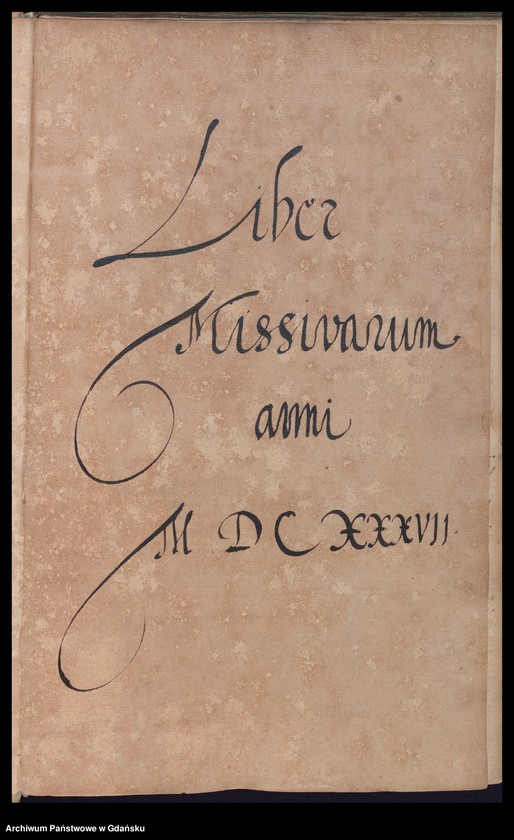 Liber
Missivarum
anni
M DC XXXVII.
Archiwum Państwowe w Gdańsku